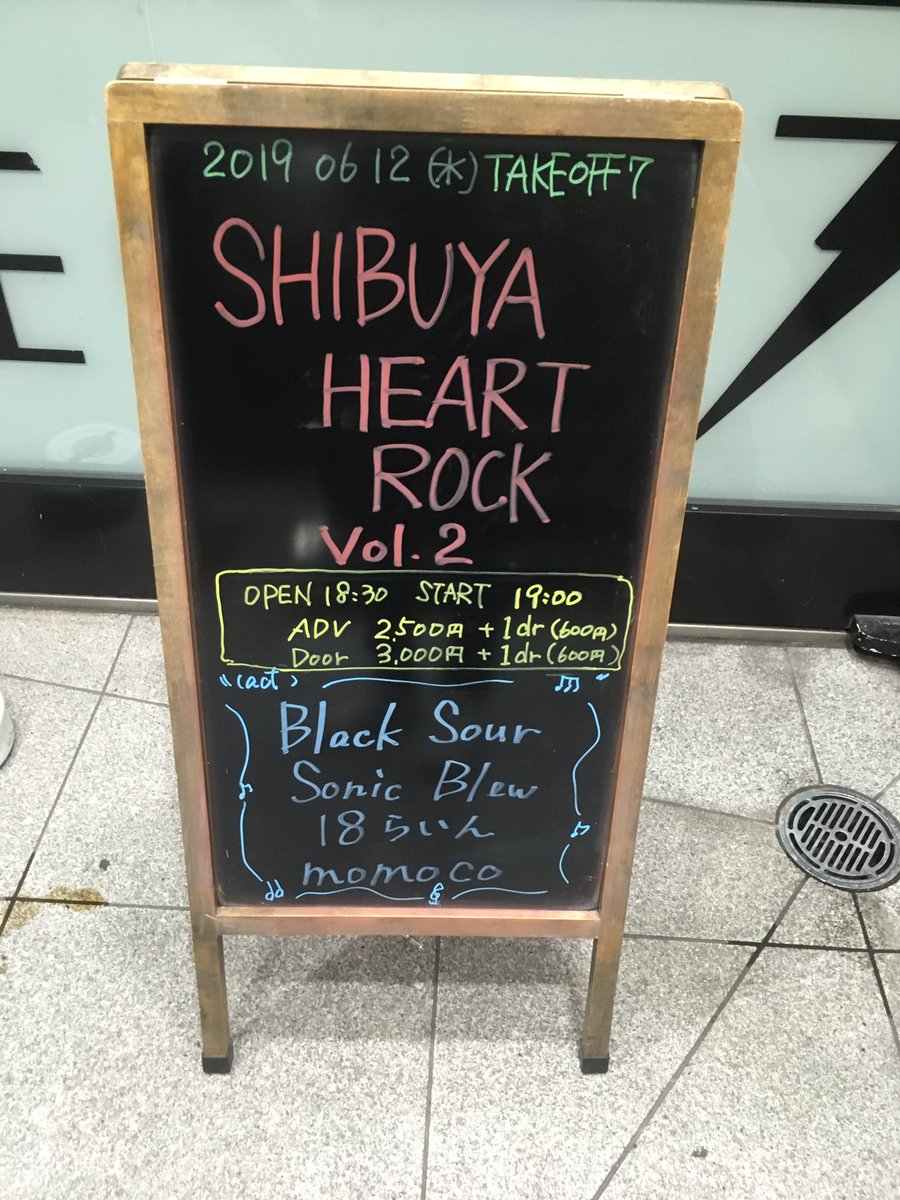 2019 06 12 (水) TAKEOFF7
SHIBUYA
HEART
ROCK
Vol.2
OPEN 18:30 START 19:00
ADV 2,500円 + 1dr (600円)
Door 3,000円 + 1dr (600円)
(act)
Black Sour
Sonic Blew
18らいん
momoco